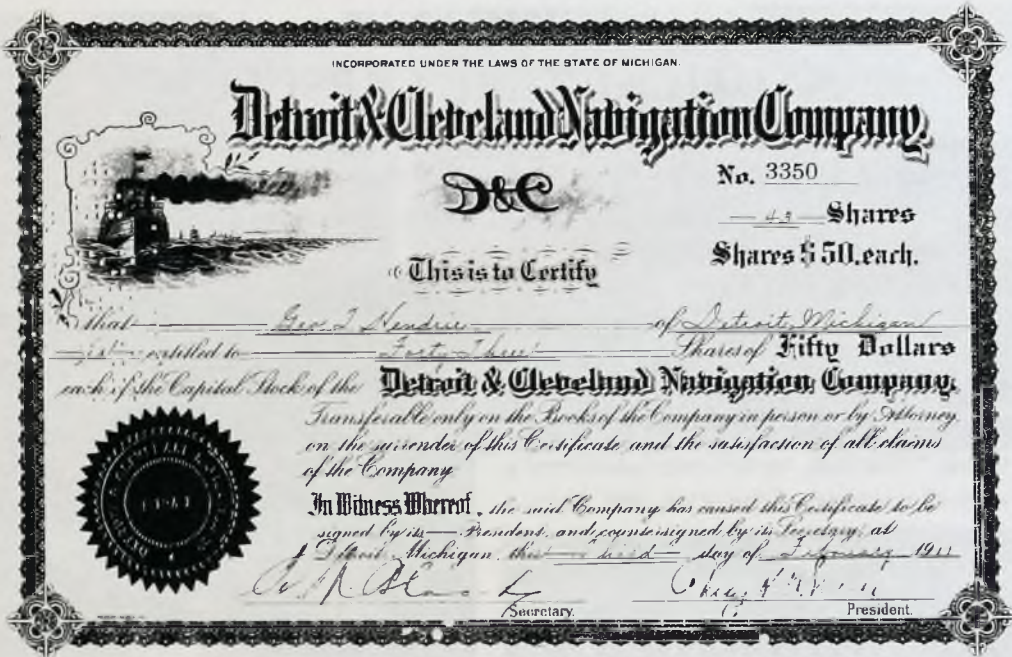 INCORPORATED UNDER THE LAWS OF THE STATE OF MICHIGAN.
Detroit & Cleveland Navigation Company.
D&C
No. 3350
43 Shares
Shares $50. each.
This is to Certify
that Geo T Hendrie of Detroit, Michigan
is entitled to Forty Three Shares of Fifty Dollars
each of the Capital Stock of the Detroit & Cleveland Navigation Company.
Transferable only on the Books of the Company in person or by Attorney
on the surrender of this Certificate and the satisfaction of all claims
of the Company
In Witness Whereof, the said Company has caused this Certificate to be
signed by its President and countersigned by its Secretary, at
Detroit, Michigan, this day of February 19
Secretary.
President.